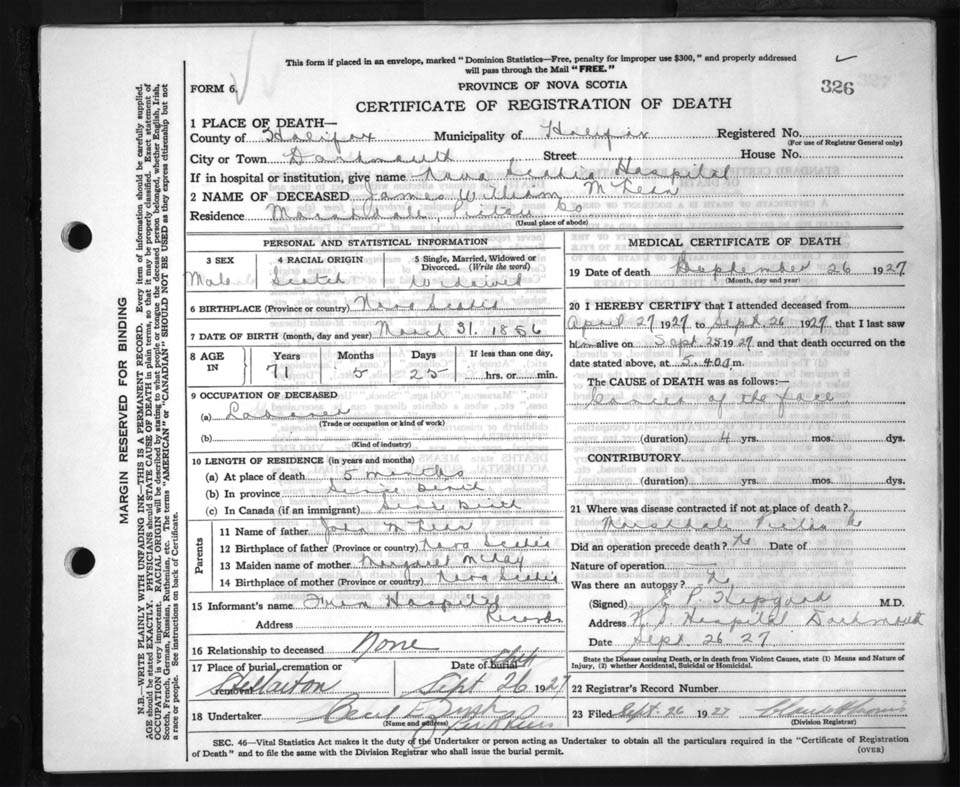 This form if placed in an envelope, marked "Dominion Statistics—Free, penalty for improper use $300," and properly addressed
will pass through the Mail "FREE."
FORM 6.
PROVINCE OF NOVA SCOTIA
326
CERTIFICATE OF REGISTRATION OF DEATH
1 PLACE OF DEATH—
County of Halifax Municipality of Halifax Registered No.
(For use of Registrar General only)
City or Town Dartmouth Street House No.
If in hospital or institution, give name Nova Scotia Hospital
2 NAME OF DECEASED James William McLean
Residence Marshdale, Pictou Co
(Usual place of abode)
PERSONAL AND STATISTICAL INFORMATION
3 SEX 4 RACIAL ORIGIN 5 Single, Married, Widowed or Divorced. (Write the word)
Male Scotch Widowed
6 BIRTHPLACE (Province or country) Nova Scotia
7 DATE OF BIRTH (month, day and year) March 31. 1856
8 AGE IN Years Months Days If less than one day,
71 5 25 hrs. or min.
9 OCCUPATION OF DECEASED
(a) Laborer
(Trade or occupation or kind of work)
(b)
(Kind of industry)
10 LENGTH OF RESIDENCE (in years and months)
(a) At place of death 5 months
(b) In province Since Birth
(c) In Canada (if an immigrant) Since Birth
Parents
11 Name of father John McLean
12 Birthplace of father (Province or country) Nova Scotia
13 Maiden name of mother Margaret McKay
14 Birthplace of mother (Province or country) Nova Scotia
15 Informant's name From Hospital
Address Records
16 Relationship to deceased None
17 Place of burial, cremation or removal Date of burial
Sept 26 1927
18 Undertaker Cecil E.
(Name and address)
MEDICAL CERTIFICATE OF DEATH
19 Date of death September 26 1927
(Month, day and year)
20 I HEREBY CERTIFY that I attended deceased from
April 27 1927 to Sept. 26 1927 that I last saw
him alive on Sept. 25 1927 and that death occurred on the
date stated above, at 5.40 a m.
The CAUSE of DEATH was as follows:—
Cancer of the face
(duration) 4 yrs. mos. dys.
CONTRIBUTORY.
(duration) yrs. mos. dys.
21 Where was disease contracted if not at place of death?
Marshdale Pictou Co
Did an operation precede death? No Date of
Nature of operation
Was there an autopsy? No
(Signed) E. P. M.D.
Address N.S. Hospital Dartmouth
Date Sept 26 27
State the Disease causing Death, or in death from Violent Causes, state (1) Means and Nature of
Injury, (2) whether Accidental, Suicidal or Homicidal.
22 Registrar's Record Number
23 Filed Sept. 26 1927
(Division Registrar)
SEC. 46—Vital Statistics Act makes it the duty of the Undertaker or person acting as Undertaker to obtain all the particulars required in the "Certificate of Registration
of Death" and to file the same with the Division Registrar who shall issue the burial permit.
(OVER)
MARGIN RESERVED FOR BINDING
N.B.—WRITE PLAINLY WITH UNFADING INK—THIS IS A PERMANENT RECORD. Every item of information should be carefully supplied.
AGE should be stated EXACTLY. PHYSICIANS should STATE CAUSE OF DEATH in plain terms, so that it may be properly classified. Exact statement of
OCCUPATION is very important. RACIAL ORIGIN will be described by stating to what people or tongue the deceased person belonged, whether English, Irish,
Scotch, French, German, Russian, Ruthenian, etc. The terms "AMERICAN" or "CANADIAN" SHOULD NOT BE USED as they express citizenship but not
a race or people. See instructions on back of Certificate.